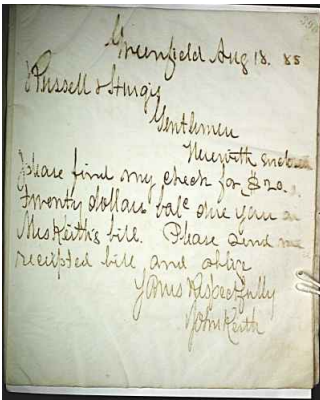 Greenfield Aug 18. 88
Russell & Sturgis
Gentlemen
Herewith enclosed
please find my check for $20.
twenty dollars balc due you on
Mrs Keith's bill. Please send me
receipted bill and oblige
Yours Respectfully
John Keith